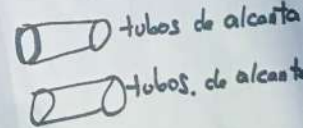 tubos de alcanta
tubos. de alcant